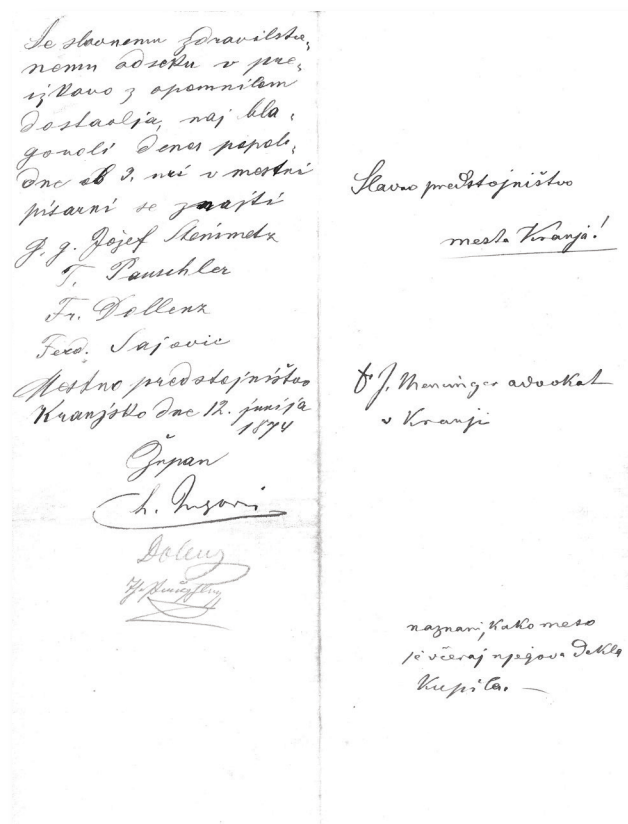 Se slavnemu zdravilstve-
nemu odseku v pre-
iskavo z opomnilom
dostavlja, naj bla-
govoli denes popol-
dne ob 3. uri v mestni
pisarni se znajti
G. g. Jožef Steinmetz
T. Pauschler
Fr. Dollenz
Ferd. Sajovic
Mestno predstojništvo
Kranjsko dne 12. junija
1874
Žrpan
Dolenz
Slavno predstojništvo
mesta Kranja!
Dr J. Mencinger advokat
v Kranji
naznani, kako meso
je včeraj njegova dekla
kupila. —